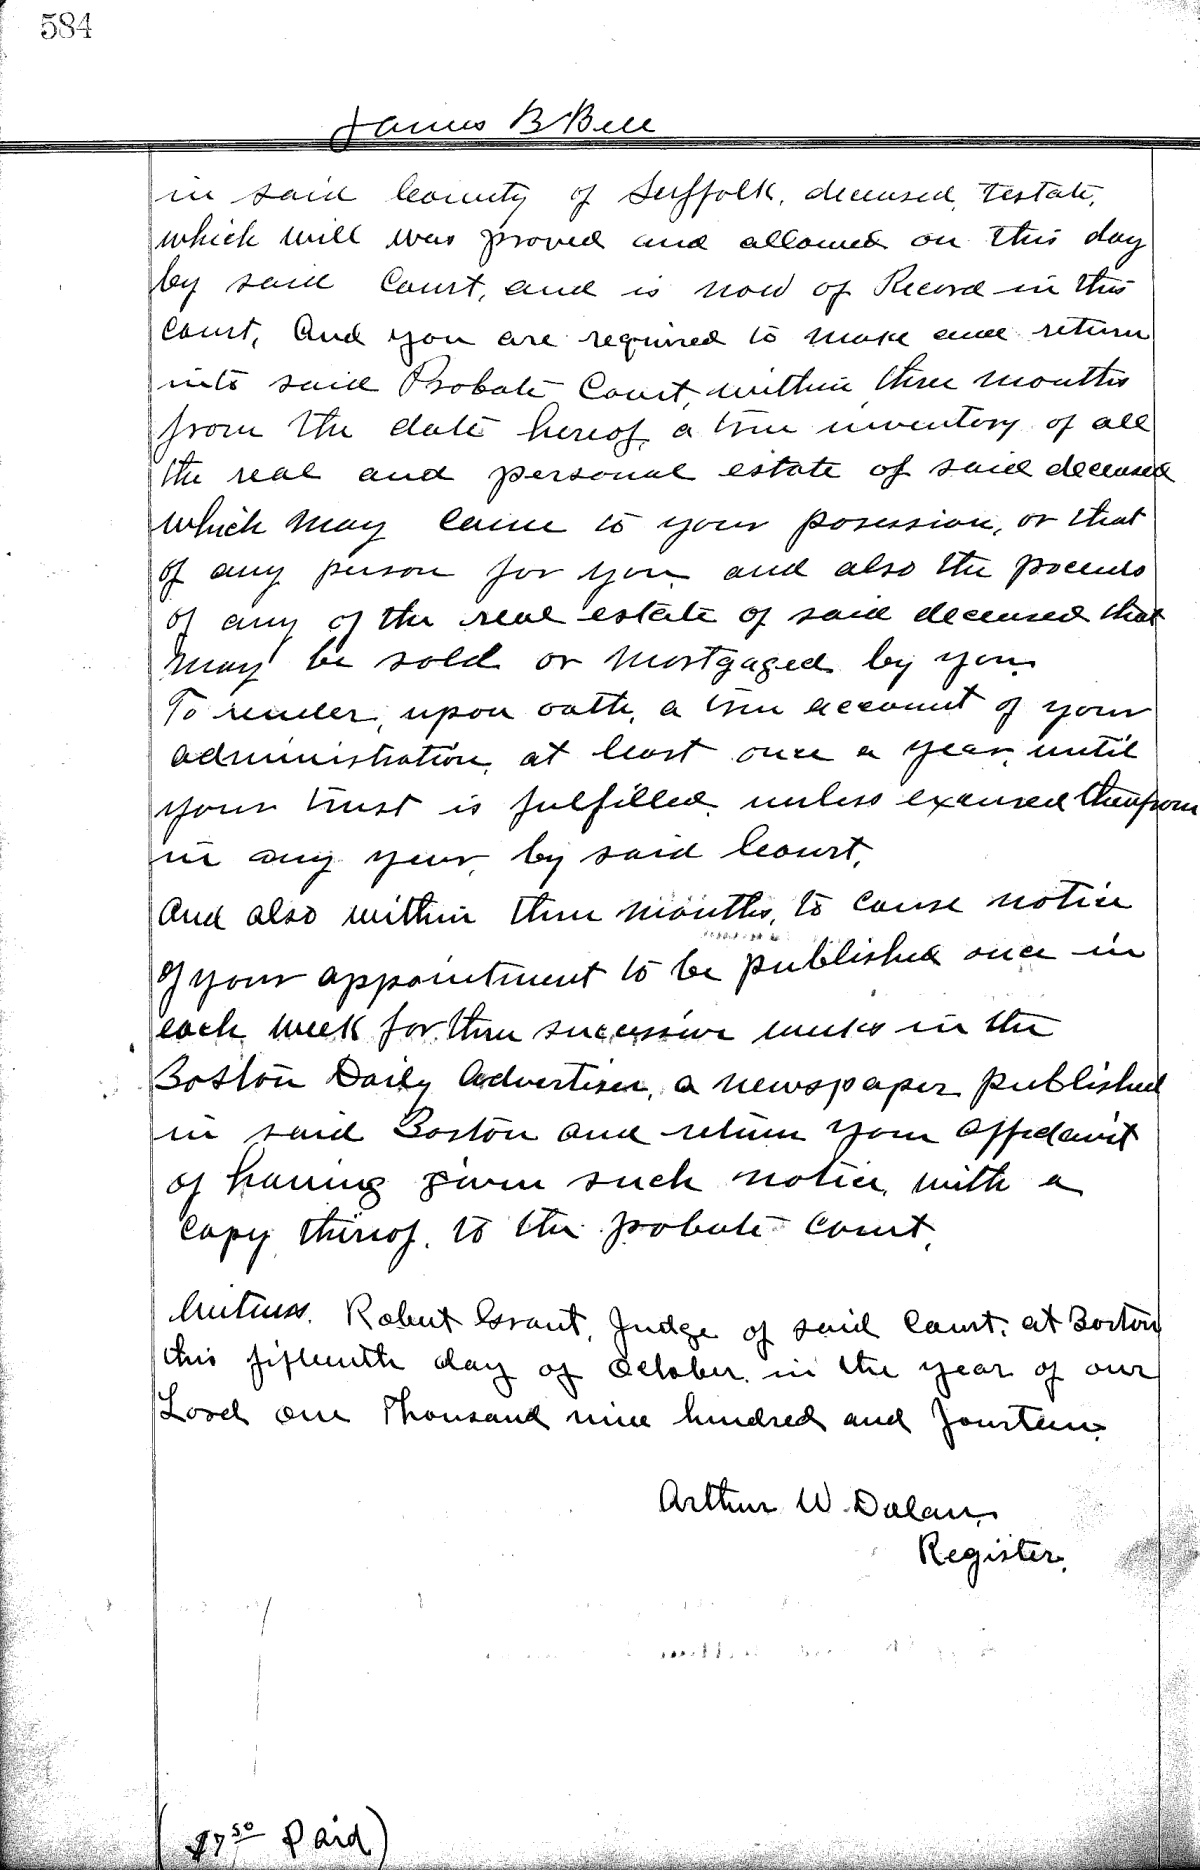 584
James B Bell
in said County of Suffolk, deceased, testate,
which will was proved and allowed on this day
by said Court, and is now of Record in this
Court, And you are required to make and return
into said Probate Court, within three months
from the date hereof, a true inventory of all
the real and personal estate of said deceased
which may come to your posession, or that
of any person for you and also the proceeds
of any of the real estate of said deceased that
may be sold or mortgaged by you.
To render, upon oath, a true account of your
administration, at least once a year, until
your trust is fulfilled, unless excused therefrom
in any year, by said Court,
And also within three months, to cause notice
of your appointment to be published once in
each week for three successive weeks in the
Boston Daily Advertiser, a newspaper published
in said Boston and return your affidavit
of having given such notice, with a
copy thereof, to the probate court,
Witness. Robert Grant, Judge of said Court, at Boston
this fifteenth day of October in the year of our
Lord one thousand nine hundred and fourteen.
Arthur W. Dolan,
Register.
($7.50 Paid)